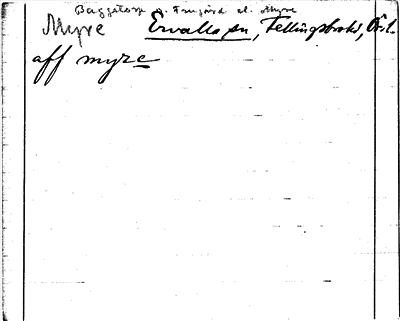 Baggetorp g. Frugård el. Myre
Myre Ervalla sn, Fellingsbro hd, Ör l.
aff myre